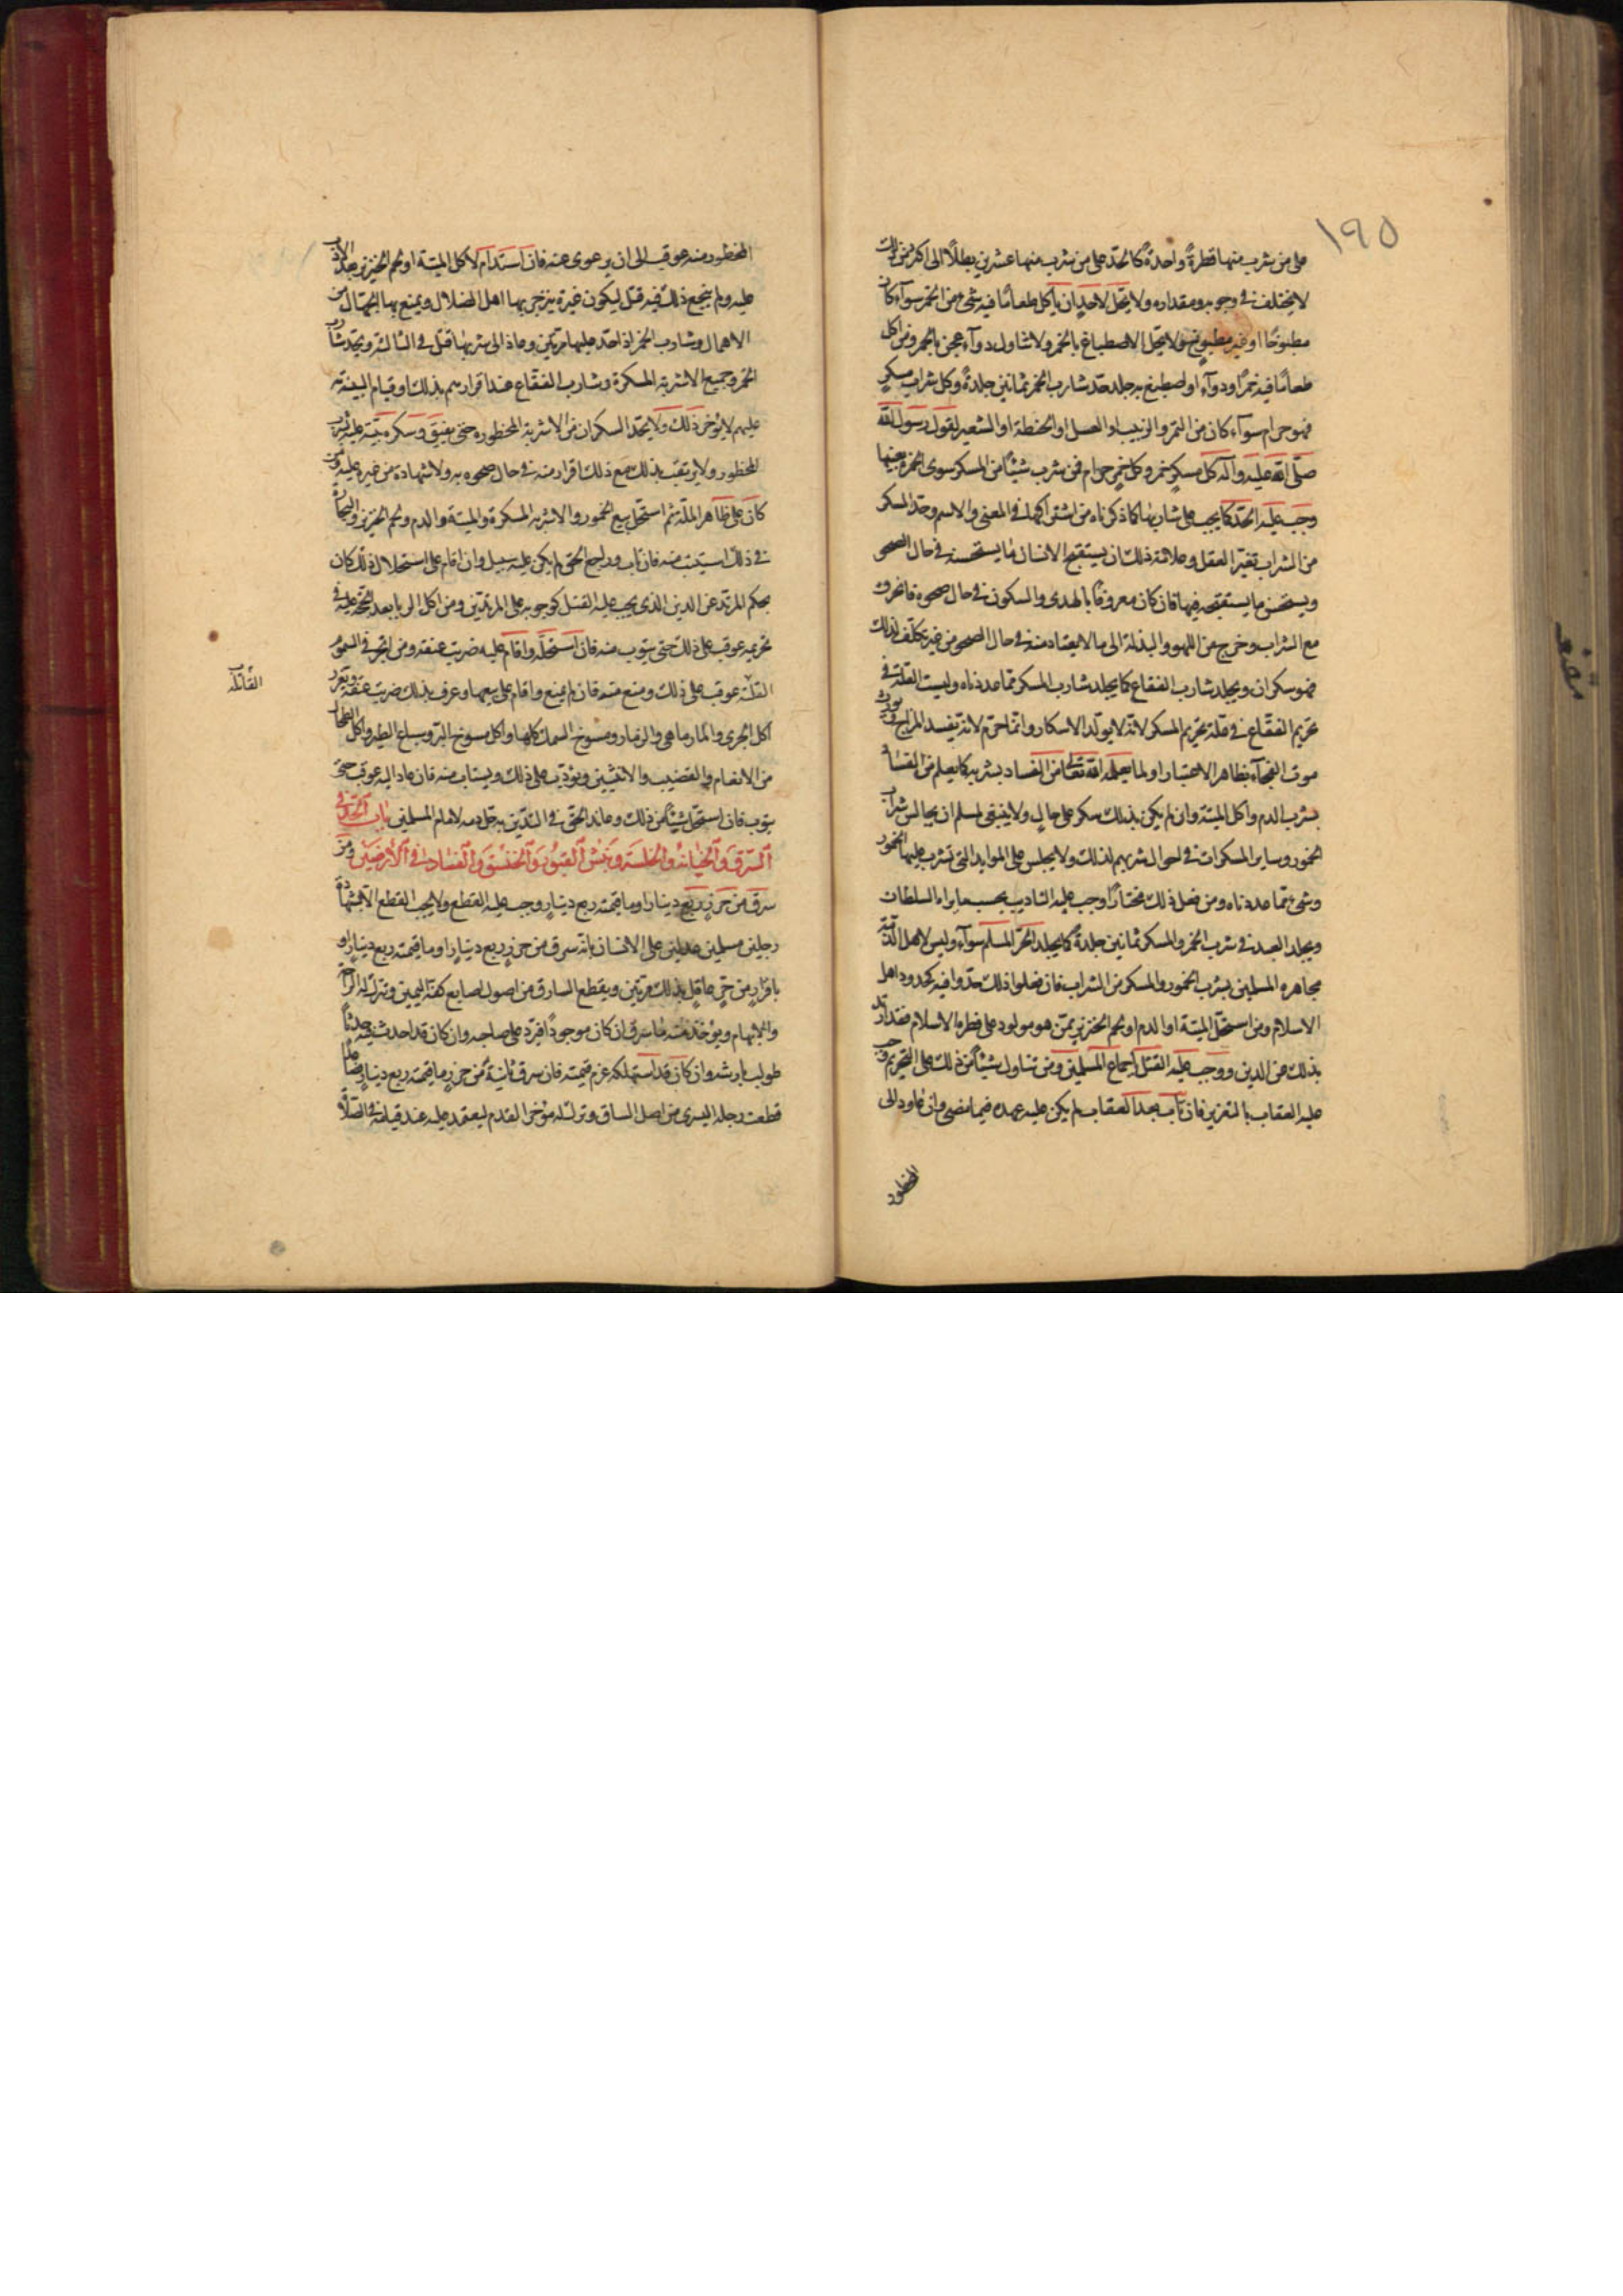 ١٩٥
على من شرب منها قطرةً واحدةً كالحدّ على من شرب منها عشرين رطلًا الى اكثر من ذلك
لا يختلف في وجوبه ومقداره ولا يحلّ لاحدٍ ان يأكل طعامًا فيه شيء من الخمر سوآء كان
مطبوخًا او غير مطبوخ ولا يحل الاصطباغ بالخمر ولا تناول دوآء عجن بالخمر ومن اكل
طعامًا فيه خمرًا ودوآء او اصطبغ به جلد حدّ شارب الخمر ثمانين جلدةً وكل شراب مسكرٍ
فهو حرام سوآء كان من التمر والزبيب او العسل او الحنطة او الشعير لقول رسول اللّه
صلّى اللّه عليه وآله كل مسكرٍ خمر وكل خمرٍ حرام فمن شرب شيئًا من المسكر سوى الخمر بعينها
وجب عليه الحدّ كما يجب على شاربها كما ذكرناه من اشتراكهما في المعنى والاسم وحدّ المسكر
من الشراب تغيّر العقل وعلامة ذلك ان يستقبح الانسان ما يستحسنه في حال الصحو
ويستحسن ما يستقبحه فيها فان كان معروفًا بالهدى والسكون في حال صحوه فانحرف
مع الشراب وخرج عن اللهو والبذلة الى ما لا يعتاد منه في حال الصحو من غير تكلّف لذلك
فهو سكران ويجلد شارب الفقاع كما يجلد شارب المسكر مما عددناه وليست العلّة في
تحريم الفقّاع في علة تحريم المسكر لانّه لا يولّد الاسكار وانّما حرّم لانّه يفسد المزاج ويورث
موت الفجأة بظاهر الاعتبار او لما يعلمه اللّه تعالى من الفساد بشربه كما يعلم من الفساد
بشرب الدم واكل الميتة وان لم يكن بذلك سكر على حالٍ ولا ينبغي لمسلم ان يجالس شراب
الخمور وساير المسكرات في احوال شربهم لذلك ولا يجلس على الموايد التي تشرب عليها الخمور
وشيء مما عددناه ومن فعل ذلك مختارًا وجب عليه التاديب بحسب ما يراه السلطان
ويجلد العبد في شرب الخمر والمسكر ثمانين جلدةً كما يجلد الحرّ المسلم سوآء وليس لاهل الذمّة
مجاهرة المسلمين بشرب الخمور والمسكر من الشراب فان فعلوا ذلك حدّوا فيه كحدود اهل
الاسلام ومن استحل الميتة او الدم او لحم الخنزير ممّن هو مولود على فطرة الاسلام فقد ارتد
بذلك عن الدين ووجب عليه القتل باجماع المسلمين ومن تناول شيئًا من ذلك على التحريم وجب
عليه العقاب بالتعزير فان تاب بعد العقاب لم يكن عليه عهدة فيما مضى وان عاود الى
المحظور
مقنعه
المحظور منه عوقب الى ان يرعوى عنه فان استدام لاكل الميتة او لحم الخنزير بعد الادب
عليه ولم ينجع ذلك فيه قتل ليكون عبرة ينزجر بها اهل الضلال ويمنع بها الجهّال من
الاهمال وشارب الخمر اذا حدّ عليها مرتين وعاد الى شربها قتل في الثالثة ويحدّ شارب
الخمر وجميع الاشربة المسكرة وشارب الفقّاع عند اقرارهم بذلك او قيام البينة به
عليهم لا يؤخر ذلك ولا يحدّ السكران من الاشربة المحظوره حتى يفيق وسكره بيّنة عليه بشرب
المحظور ولا يرتقب بذلك مع ذلك اقرار منه في حال صحوه به ولا شهادة من غيره عليه ومن
كان على ظاهر الملّة ثم استحل بيع الخمور والاشربة المسكرة والميتة والدم ولحم الخنزير والتجارة
في ذلك استتيب منه فان تاب وراجع الحق لم يكن عليه سبيل وان اقام على استحلال ذلك كان
بحكم المرتد عن الدين الذى يجب عليه القتل كوجوبه على المرتدّين ومن اكل الربا بعد الحجّة عليه في
تحريمه عوقب على ذلك حتى يتوب منه فان استحلّه واقام عليه ضربت عنقه ومن اتجر في السموم
القاتلة عوقب على ذلك ومنع منه فان لم يمتنع واقام على بيعها وعرف بذلك ضربت عنقه ويعزّر
القاتلة
اكل الجرى والمارماهي والزمار ومسوخ السمك كلها واكل مسوخ البر وسباع الطير واكل الطحال
من الانعام والقضيب والانثيين ويؤدّب على ذلك ويستتاب منه فان عاد اليه عوقب حتى
يتوب فان استحلّ شيئًا من ذلك وعاند الحق في التديّن به حلّ دمه لامام المسلمين باب الحدّ في
السّرق والخيانة والخلسة ونبش القبور والخنق والفساد في الأرضين ومن
سرق من حرزٍ ربع دينار او ما قيمته ربع دينارٍ وجب عليه القطع ولا يجب القطع الّا بشهادة
رجلين مسلمين عدلين على الانسان بانّه سرق من حرزٍ ربع دينارًا وما قيمته ربع دينارٍ او
باقرارٍ من حرٍّ عاقلٍ بذلك مرتين ويقطع السارق من اصول اصابع كفّه اليمين ويترك له الراحة
والابهام ويؤخذ منه ما سرق ان كان موجودًا فيردّ على صاحبه وان كان قد احدث فيه حدثًا
طولب بارشه وان كان قد استهلكه غرم قيمته فان سرق ثانيةً من حرزٍ ما قيمته ربع دينارٍ فصاعدًا
قطعت رجله اليسرى من اصل الساق وترك له مؤخر القدم ليعتمد عليه عند قيامه في الصلاة